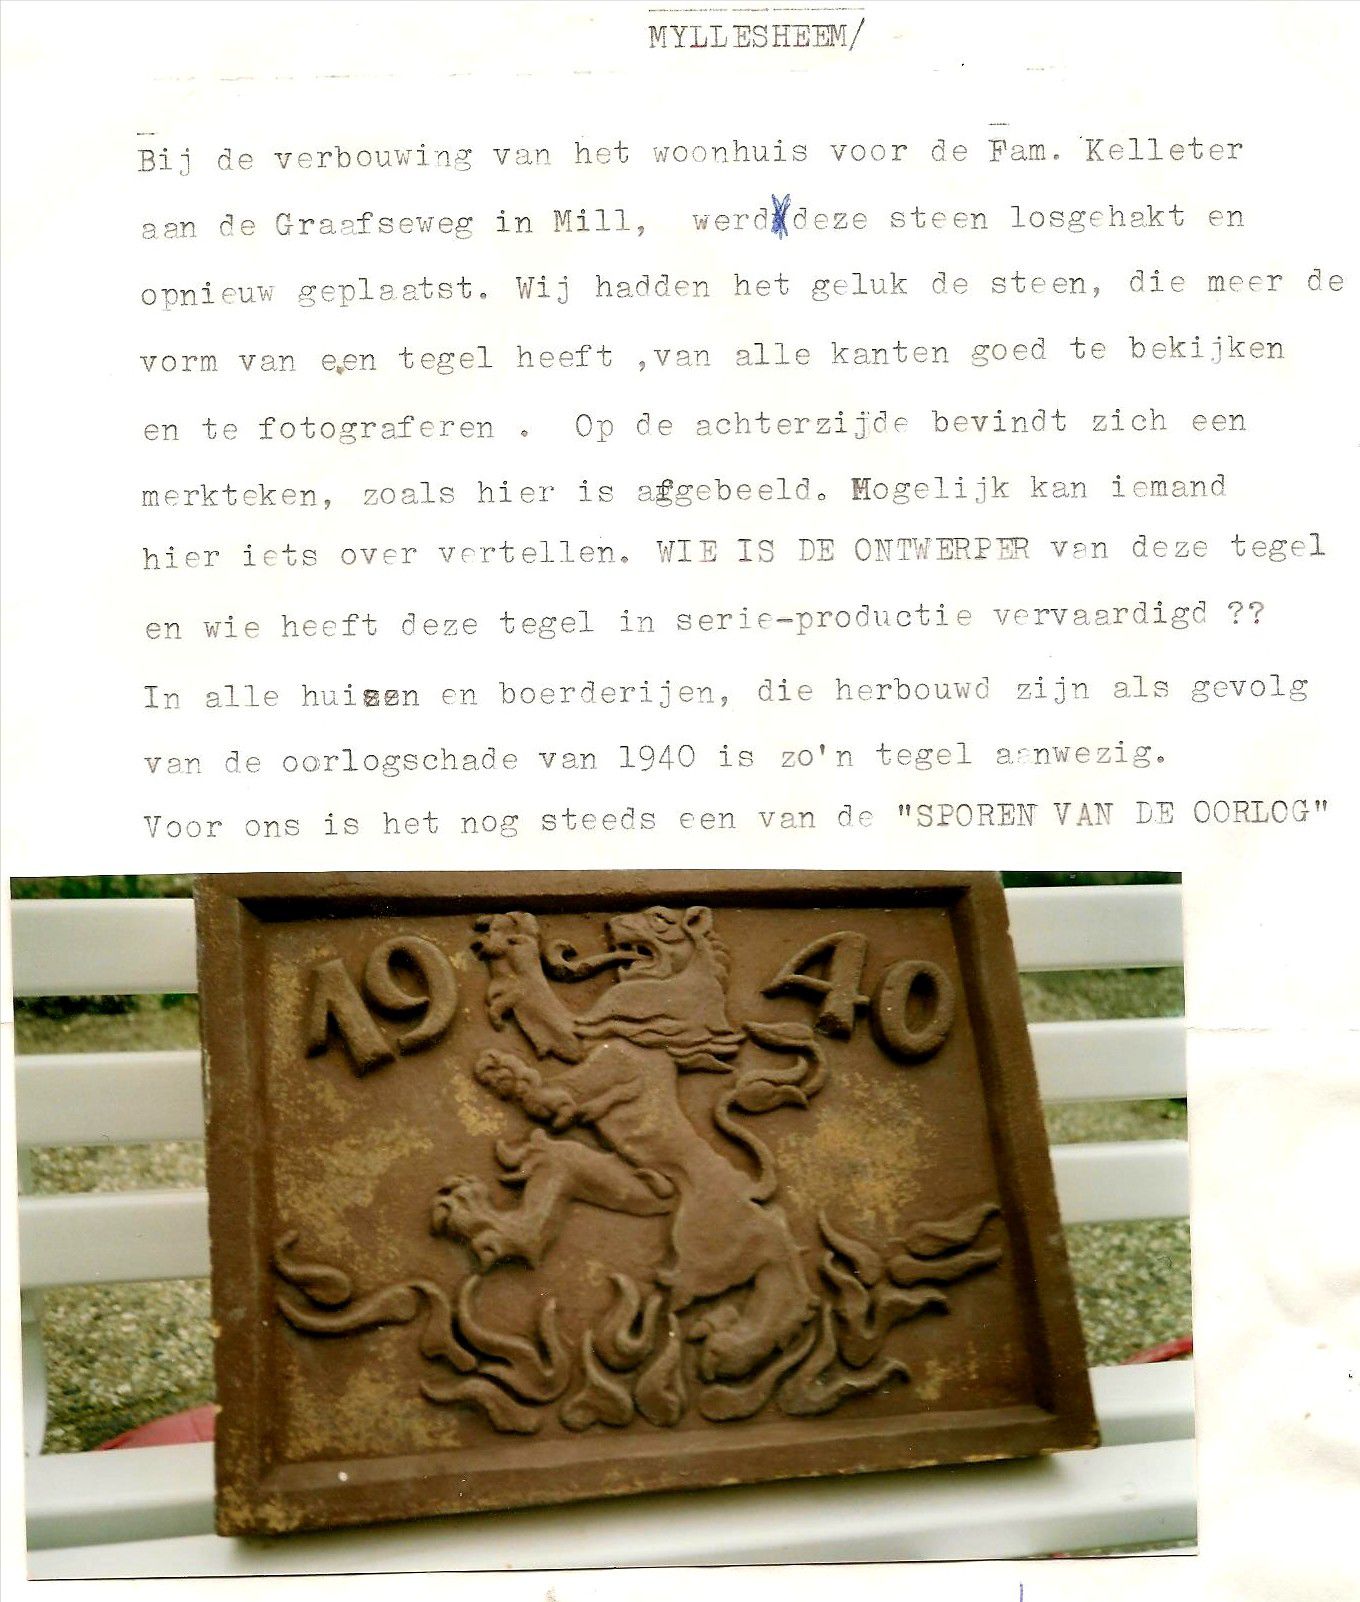 MYLLESHEEM/
Bij de verbouwing van het woonhuis voor de Fam. Kelleter
aan de Graafseweg in Mill, werd deze steen losgehakt en
opnieuw geplaatst. Wij hadden het geluk de steen, die meer de
vorm van een tegel heeft ,van alle kanten goed te bekijken
en te fotograferen . Op de achterzijde bevindt zich een
merkteken, zoals hier is afgebeeld. Mogelijk kan iemand
hier iets over vertellen. WIE IS DE ONTWERPER van deze tegel
en wie heeft deze tegel in serie-productie vervaardigd ??
In alle huizen en boerderijen, die herbouwd zijn als gevolg
van de oorlogschade van 1940 is zo'n tegel aanwezig.
Voor ons is het nog steeds een van de "SPOREN VAN DE OORLOG"
19 40